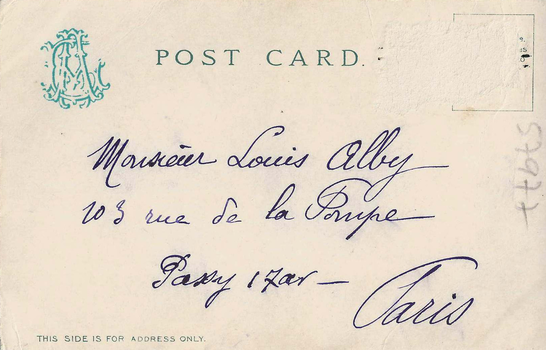 POST CARD.
Monsieur Louis Alby
103 rue de la Pompe
Passy 17ar —
Paris
THIS SIDE IS FOR ADDRESS ONLY.